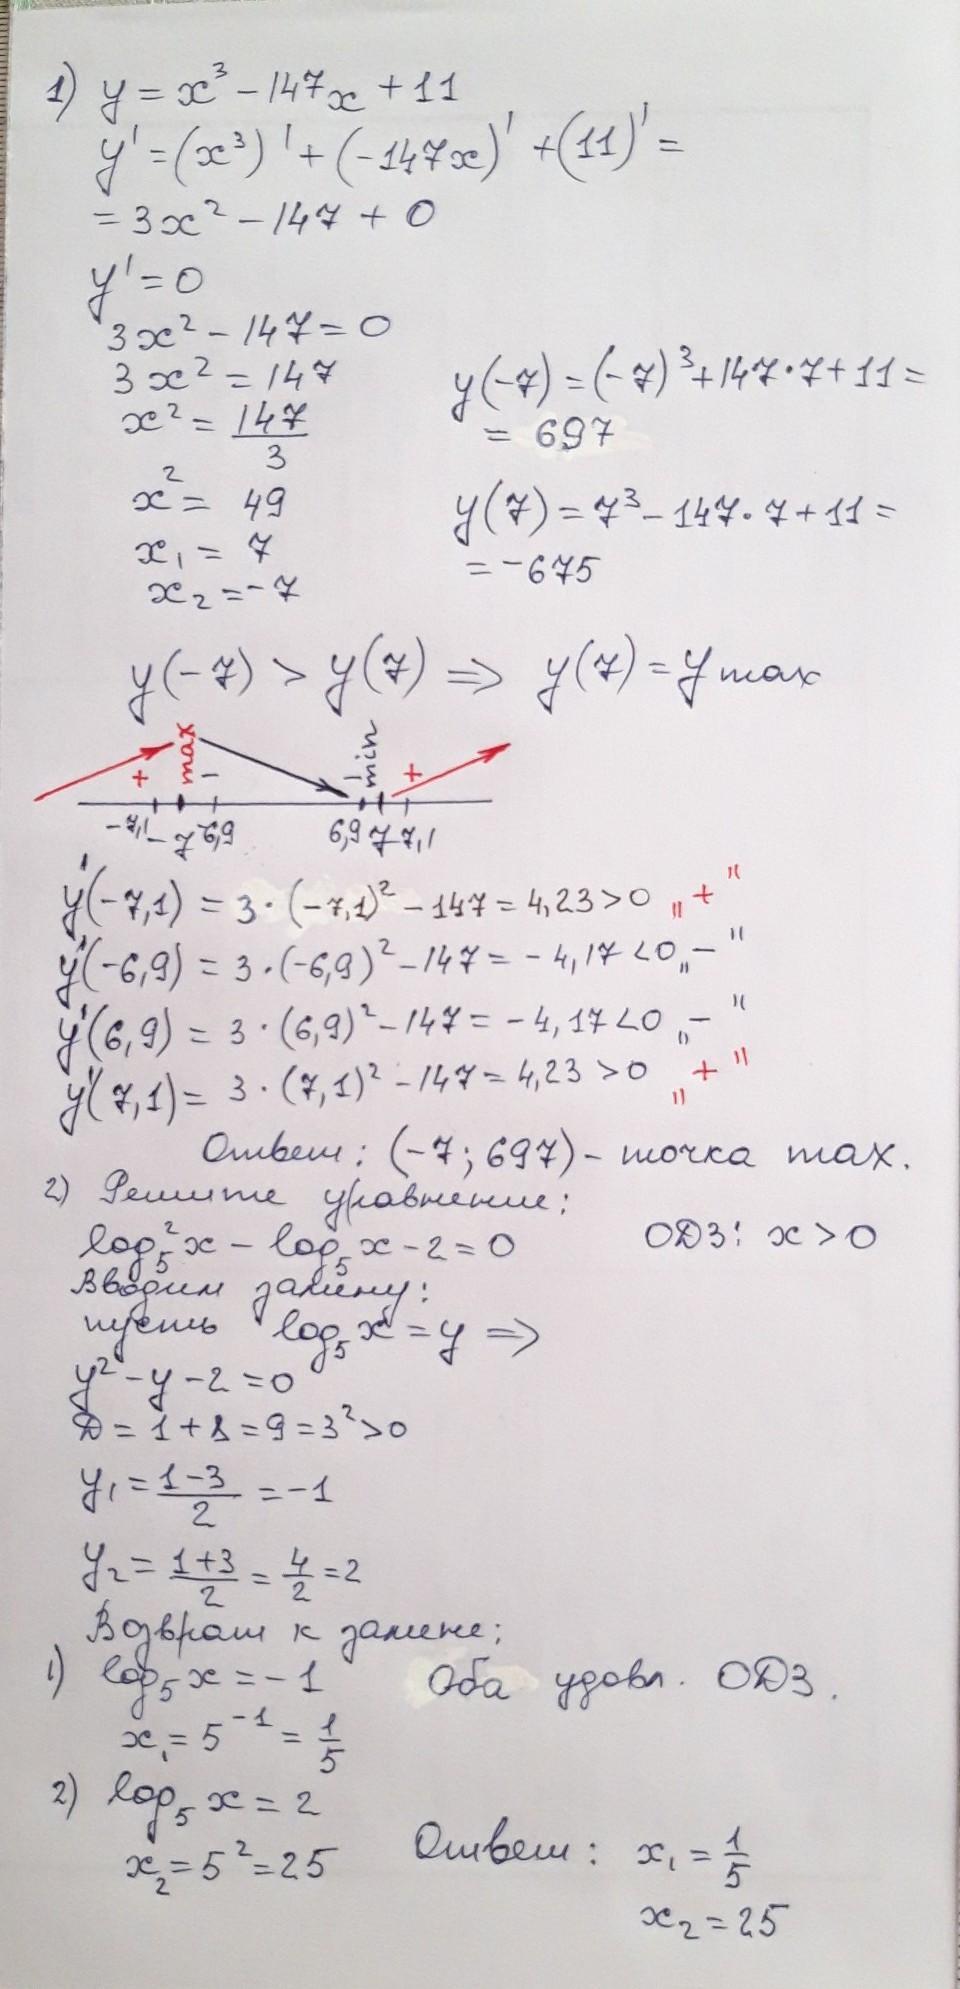 1) y = x³ - 147x + 11
y' = (x³)' + (-147x)' + (11)' =
= 3x² - 147 + 0
y' = 0
3x² - 147 = 0
3x² = 147
x² = 147/3
x² = 49
x₁ = 7
x₂ = -7
y(-7) = (-7)³ + 147·7 + 11 =
= 697
y(7) = 7³ - 147·7 + 11 =
= -675
y(-7) > y(7) ⇒ y(7) = y max
+ max - - min +
-7,1 -7 -6,9 6,9 7 7,1
y'(-7,1) = 3·(-7,1)² - 147 = 4,23 > 0 „+"
y'(-6,9) = 3·(-6,9)² - 147 = -4,17 < 0 „-"
y'(6,9) = 3·(6,9)² - 147 = -4,17 < 0 „-"
y'(7,1) = 3·(7,1)² - 147 = 4,23 > 0 „+"
Ответ: (-7; 697) - точка max.
2) Решите уравнение:
log₅²x - log₅x - 2 = 0 ОДЗ: x > 0
Вводим замену:
пусть log₅x = y ⇒
y² - y - 2 = 0
D = 1 + 8 = 9 = 3² > 0
y₁ = (1-3)/2 = -1
y₂ = (1+3)/2 = 4/2 = 2
Возврат к замене:
1) log₅x = -1 Оба удовл. ОДЗ.
x₁ = 5⁻¹ = 1/5
2) log₅x = 2
x₂ = 5² = 25
Ответ: x₁ = 1/5
x₂ = 25